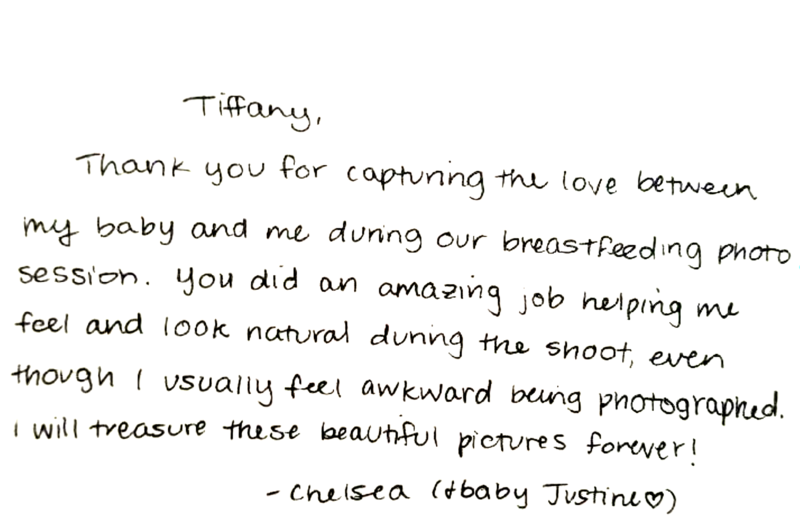 Tiffany,
Thank you for capturing the love between
my baby and me during our breastfeeding photo
session. You did an amazing job helping me
feel and look natural during the shoot, even
though I usually feel awkward being photographed.
I will treasure these beautiful pictures forever!
- Chelsea (+baby Justine♡)